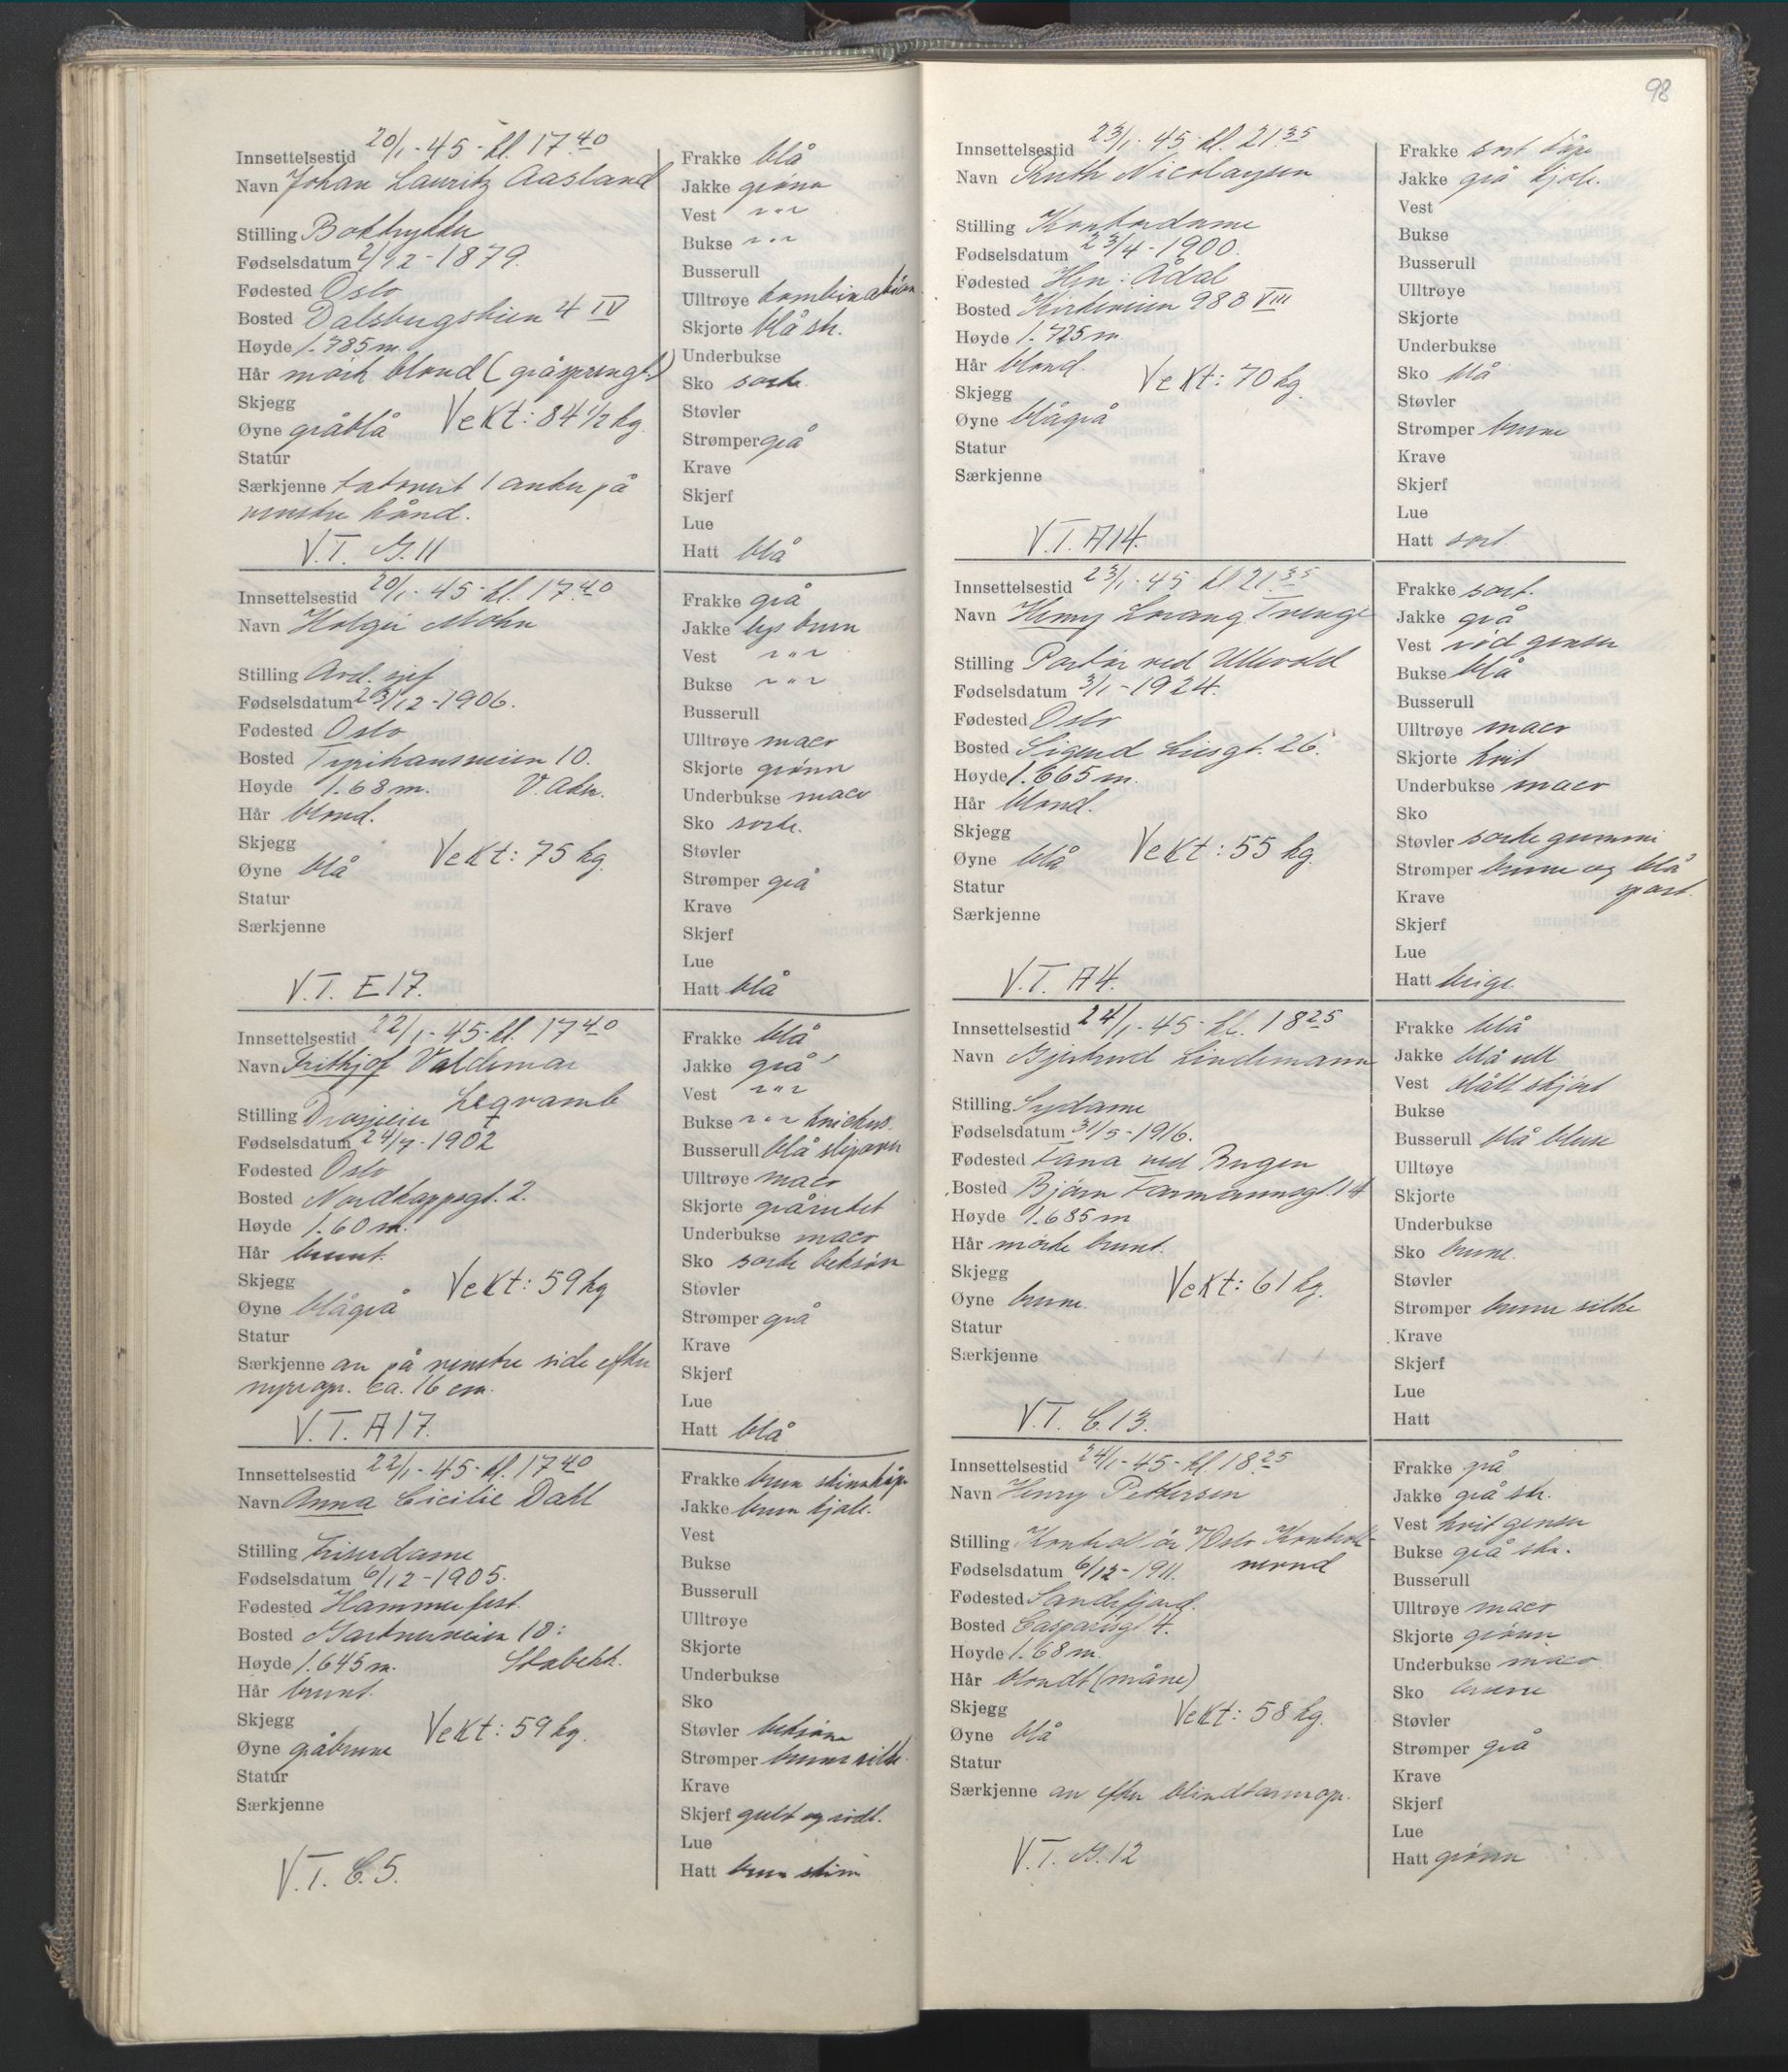 98
Innsettelsestid 20/1-45-kl. 17.40
Navn Johan Lauritz Aasland
Stilling Boktrykker
Fødselsdatum 2/12-1879.
Fødested Oslo
Bosted Dalsbergstien 4 IV
Høyde 1.785 m.
Hår mørk blond (gråsprengt)
Skjegg
Øyne gråblå Vekt: 84 1/2 kg.
Statur
Særkjenne tatovert 1 anker på
venstre hånd.
V.T. G.11
Frakke blå
Jakke grønn
Vest "
Bukse "
Busserull
Ulltrøye kombinasjon
Skjorte blå str.
Underbukse
Sko sorte.
Støvler
Strømper grå
Krave
Skjerf
Lue
Hatt blå
Innsettelsestid 20/1-45-kl. 17.40
Navn Holger Mohn
Stilling Avd. sjef
Fødselsdatum 23/12-1906.
Fødested Oslo
Bosted Tyrihansveien 10.
Høyde 1.68 m. V. Aker.
Hår blond.
Skjegg
Øyne blå Vekt: 75 kg.
Statur
Særkjenne
V.T. E17.
Frakke grå
Jakke lys brun
Vest "
Bukse "
Busserull
Ulltrøye maco
Skjorte grønn
Underbukse maco
Sko sorte.
Støvler
Strømper grå
Krave
Skjerf
Lue
Hatt blå
Innsettelsestid 22/1-45-kl. 17.40
Navn Frithjof Valdemar
Legvamb
Stilling Drosjeeier
Fødselsdatum 24/7-1902
Fødested Oslo
Bosted Nordkappgt. 2.
Høyde 1.60 m.
Hår brunt.
Skjegg
Øyne blågrå Vekt: 59 kg
Statur
Særkjenne arr på venstre side efter
nyreopr. ca. 16 cm.
V.T. A17.
Frakke blå
Jakke grå
Vest "
Bukse " knickers.
Busserull blå slipover
Ulltrøye maco
Skjorte gårutet
Underbukse maco
Sko sorte beksøm
Støvler
Strømper grå
Krave
Skjerf
Lue
Hatt blå
Innsettelsestid 22/1-45-kl. 17.40
Navn Anna Cicilie Dahl
Stilling Friserdame
Fødselsdatum 6/12-1905.
Fødested Hammerfest.
Bosted Gartnerveien 10:
Høyde 1.645 m. Stabekk.
Hår brunt.
Skjegg
Øyne gråbrune Vekt: 59 kg.
Statur
Særkjenne
V.T. C.5.
Frakke brun skinnkåpe
Jakke brun kjole.
Vest
Bukse
Busserull
Ulltrøye
Skjorte
Underbukse
Sko
Støvler beksøm
Strømper brune silke.
Krave
Skjerf gult og rødt.
Lue
Hatt brun skinn
Innsettelsestid 23/1-45-kl. 21.35
Navn Ruth Nicolaysen
Stilling Kontordame
Fødselsdatum 23/4-1900.
Fødested Hen: Ådal
Bosted Kirkeveien 98 B VIII
Høyde 1.725 m.
Hår blond.
Skjegg Vekt: 70 kg.
Øyne blågrå
Statur
Særkjenne
V.T. A14.
Frakke sort kåpe
Jakke grå kjole.
Vest
Bukse
Busserull
Ulltrøye
Skjorte
Underbukse
Sko blå
Støvler
Strømper brune
Krave
Skjerf
Lue
Hatt sort
Innsettelsestid 23/1-45 kl 21.35
Navn Henry Lorang Trenge
Stilling Portør ved Ullevold
Fødselsdatum 3/1-1924.
Fødested Oslo
Bosted Sigurd Liesgt. 26.
Høyde 1.665 m.
Hår blond.
Skjegg
Øyne blå Vekt: 55 kg.
Statur
Særkjenne
V.T. A4.
Frakke sort.
Jakke grå
Vest rød genser
Bukse blå
Busserull
Ulltrøye maco
Skjorte hvit
Underbukse maco
Sko
Støvler sorte gummi
Strømper brune og blå
sport.
Krave
Skjerf
Lue
Hatt beige.
Innsettelsestid 24/1-45-kl. 18.25
Navn Gjertrud Lindemann
Stilling Sydame
Fødselsdatum 31/5-1916.
Fødested Fana ved Bergen
Bosted Bjørn Farmannsgt. 14
Høyde 1.685 m
Hår mørke brunt.
Skjegg
Øyne brune. Vekt: 61 kg.
Statur
Særkjenne
V.T. C.13.
Frakke blå
Jakke blå ull
Vest blått skjørt
Bukse
Busserull blå bluse
Ulltøye
Skjorte
Underbukse
Sko brune.
Støvler
Strømper brune silke
Krave
Skjerf
Lue
Hatt
Innsettelsestid 24/1-45-kl. 18.25
Navn Henry Pettersen
Stilling Kontrollør v/Oslo Kontroll-
nevnd
Fødselsdatum 6/12-1911.
Fødested Sandefjord.
Bosted Casparisgt 4.
Høyde 1.68 m.
Hår blondt (måne)
Skjegg Vekt: 58 kg.
Øyne blå
Statur
Særkjenne arr efter blindtarmopr.
V.T. G.12
Frakke grå
Jakke grå str.
Vest hvit genser
Bukse grå str.
Busserull
Ulltrøye maco
Skjorte grønn.
Underbukse maco
Sko brune
Støvler
Strømper grå
Krave
Skjerf
Lue
Hatt grønn